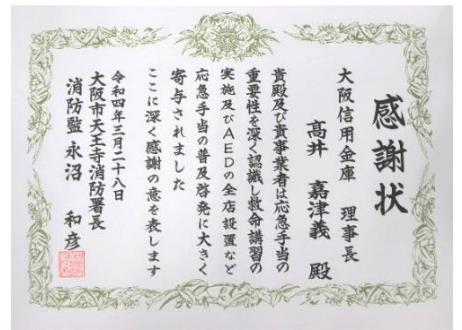 感謝状
大阪信用金庫 理事長
髙井 嘉津義 殿
貴殿及び貴事業者は応急手当の
重要性を深く認識し救命講習の
実施及びAEDの全店設置など
応急手当の普及啓発に大きく
寄与されました
ここに深く感謝の意を表します
令和四年三月二十八日
大阪市天王寺消防署長
消防監 永沼 和彦